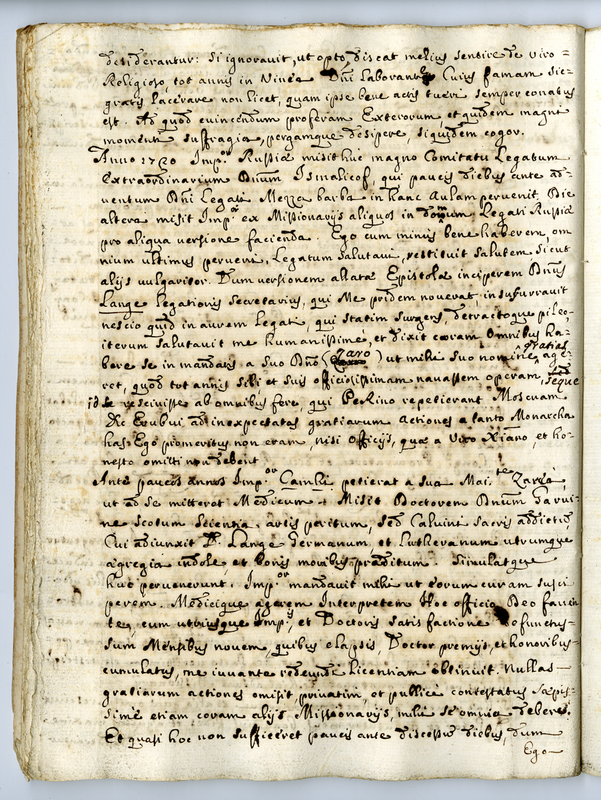 desiderantur: Si ignoravit, ut opto, discat melius sentire de viro =
Religioso tot annis in Vinea Dñi Laborante, Cuius famam sic
gratis lacerare non licet, quam ipse bene actis tueri semper conatus
est. Ad quod evincendum proferam Exterorum, et quidem magni
momenti suffragia, pergamque desipere, siquidem cogor.
Anno 1720 Imp.or Russiæ misit huc magno Comitatu Legatum
extraordinarium Dnum Ismalicof, qui paucis diebus ante ad-
ventum Dñi Legati Mezza barba in hanc Aulam pervenit. Die
altera misit Imp.r ex Missionarijs aliquos in domum Legati Russiæ
pro aliqua versione facienda. Ego cum minus bene haberem, om
nium ultimus perveni, Legatum salutavi, restituit salutem sicut
alijs vulgariter. Dum versionem allatæ Epistolæ inciperem Dnus
Lange legationis Secretarius, qui Me pridem noverat, insusurravit
nescio quid in aurem Legati, qui statim surgens, detractoque pileo-
iterum salutavit me humanissime, et dixit coram omnibus ha-
bere se in mandatis a suo Dño (Zaro) ut mihi suo nomine gratias age-
ret, quod tot annis sibi et suis officiosissimam navassem operam, seque
id se rescivisse ab omnibus fere, qui Pekino repetierant Moscuam
Hic Erubui ad inexpectatas gratiarum actiones a tanto Monarcha
has Ego promeritus non eram, nisi officijs, quæ a Viro Xiano, et ho-
nesto omitti non debent
Ante paucos annos Imp.or Camhi petierat a sua Mai.te Zarea,
ut ad se mitteret Medicum. Misit Doctorem Dnum Garvi-
ne Scotum scientia artis peritum, sed Calvini sacris addictum,
Cui adiunxit D. Lange Germanum et Lutheranum utrumque
ægregia indole et bonis moribus præditum. Simulatque
huc pervenerunt Imp.or mandavit mihi ut eorum curam susci
perem. Medicique agerem Interpretem Hoc officio Deo faven
te, cum utriusque Imp.is, et Doctoris satisfactione defunctus
sum Mensibus novem, quibus elapsis, Doctor premijs, et honoribus
cumulatus, me iuvante redeundi licentiam obtinuit. Nullas
gratiarum actiones omisit privatim et publice contestatus sæpis-
sime etiam coram alijs Missionarijs, mihi se omnia debere.
Et quasi hoc non sufficeret paucis ante discessum diebus, dum
Ego